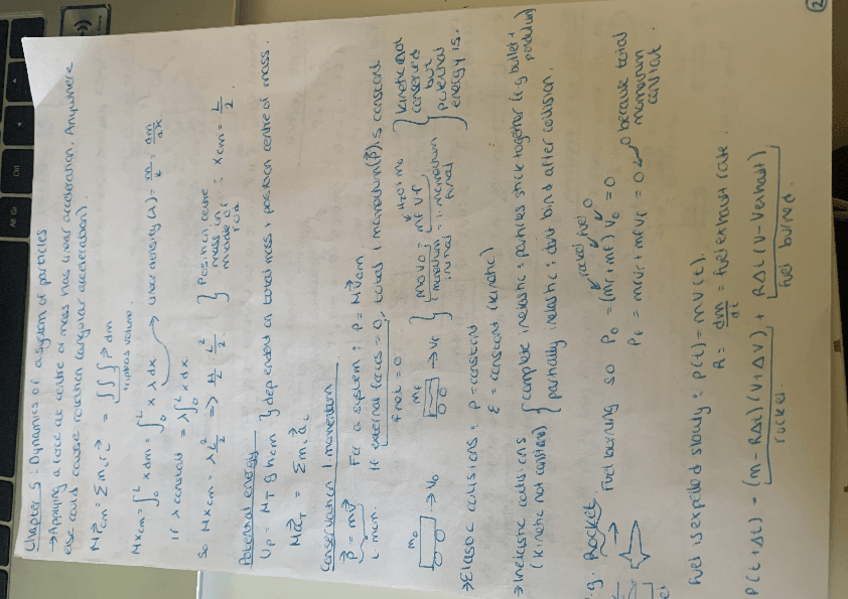 Chapter 5: Dynamics of a system of particles
→ Applying a force at centre of mass has linear acceleration. Anywhere
else could cause rotation (angular acceleration).
M r⃗cm = Σ mᵢ rᵢ = ∫∫∫ r⃗ dm
implies volume.
M xcm = ∫₀ᴸ x dm = ∫₀ᴸ x λ dx → linear density (λ) = m/L = dm/dx
If λ constant = λ∫₀ᴸ x dx.
So M xcm = λ L²/2 => M/L · L²/2 } position centre mass in middle of rod : xcm = L/2
Potential energy
Up = MT g hcm } dependent on total mass + position centre of mass.
M a⃗T = Σ mᵢ a⃗ᵢ
Conservation l momentum
P⃗ = m v⃗ For a system : P = M V⃗com
l mom. If external forces = 0, total l momentum (P⃗) is constant
Fnet = 0
m0 → v0 mf → vf } m0v0 = mfvf } kinetic not conserved but potential energy is.
l momentum initial = l momentum final
→ Elastic collisions : P = constant
E = constant (kinetic)
→ Inelastic collisions { complete inelastic : particles stick together (e.g bullet + pendulum)
(kinetic not constant) partially inelastic : dont bind after collision.
e.g. Rocket. Fuel burning so P0 = (mr + mf) v0 = 0
rocket fuel 0
Pf = mrvr + mfvf = 0 because total momentum constant
Fuel is expelled slowly : P(t) = mv(t).
R = dm/dt = fuel exhaust rate.
P(t+Δt) = (m - RΔt)(v + Δv) + RΔt (v - vexhaust)
rocket. fuel burned.
2